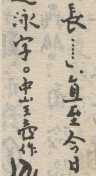 長……」直至今日
泳字。中山王㠱作